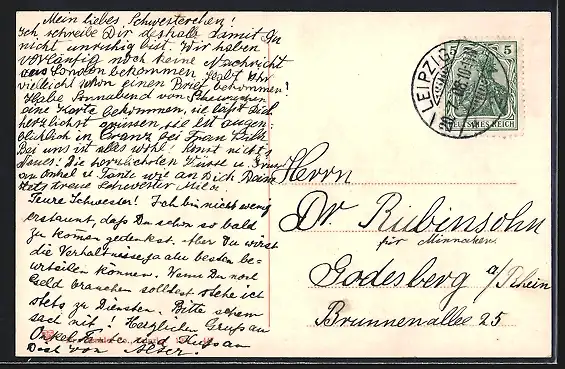 Mein liebes Schwesterchen!
Ich schreibe Dir deshalb damit Du
nicht unruhig bist. Wir haben
vorläufig noch keine Nachricht
aus London bekommen. Habt Ihr
vielleicht schon einen Brief bekommen?
Habe Sonnabend von
eine Karte bekommen, sie läßt Dich
herzlichst grüssen, sie ist augen-
blicklich in Cranz bei Frau
Bei uns ist alles wohl! sonst nichts
Neues! Die herzlichsten Grüsse u. Küsse
an Onkel u. Tante wie an Dich Deine
stets treue Schwester Milda.
Teure Schwester! Ich bin nicht wenig
erstaunt, daß Du schon so bald
zu kommen gedenkst. Aber Du wirst
die Verhältnisse ja am besten be-
urteilen können. Wenn Du noch
Geld brauchen solltest stehe ich
stets zu Diensten. Bitte schon
mit! Herzlichen Gruss an
Onkel, Tante und Kuss an
Dich von
LEIPZIG
5 5
DEUTSCHES REICH
Herrn
Dr. Rubinsohn
für Minnachen
Godesberg a/Rhein
Brunnenallee 25